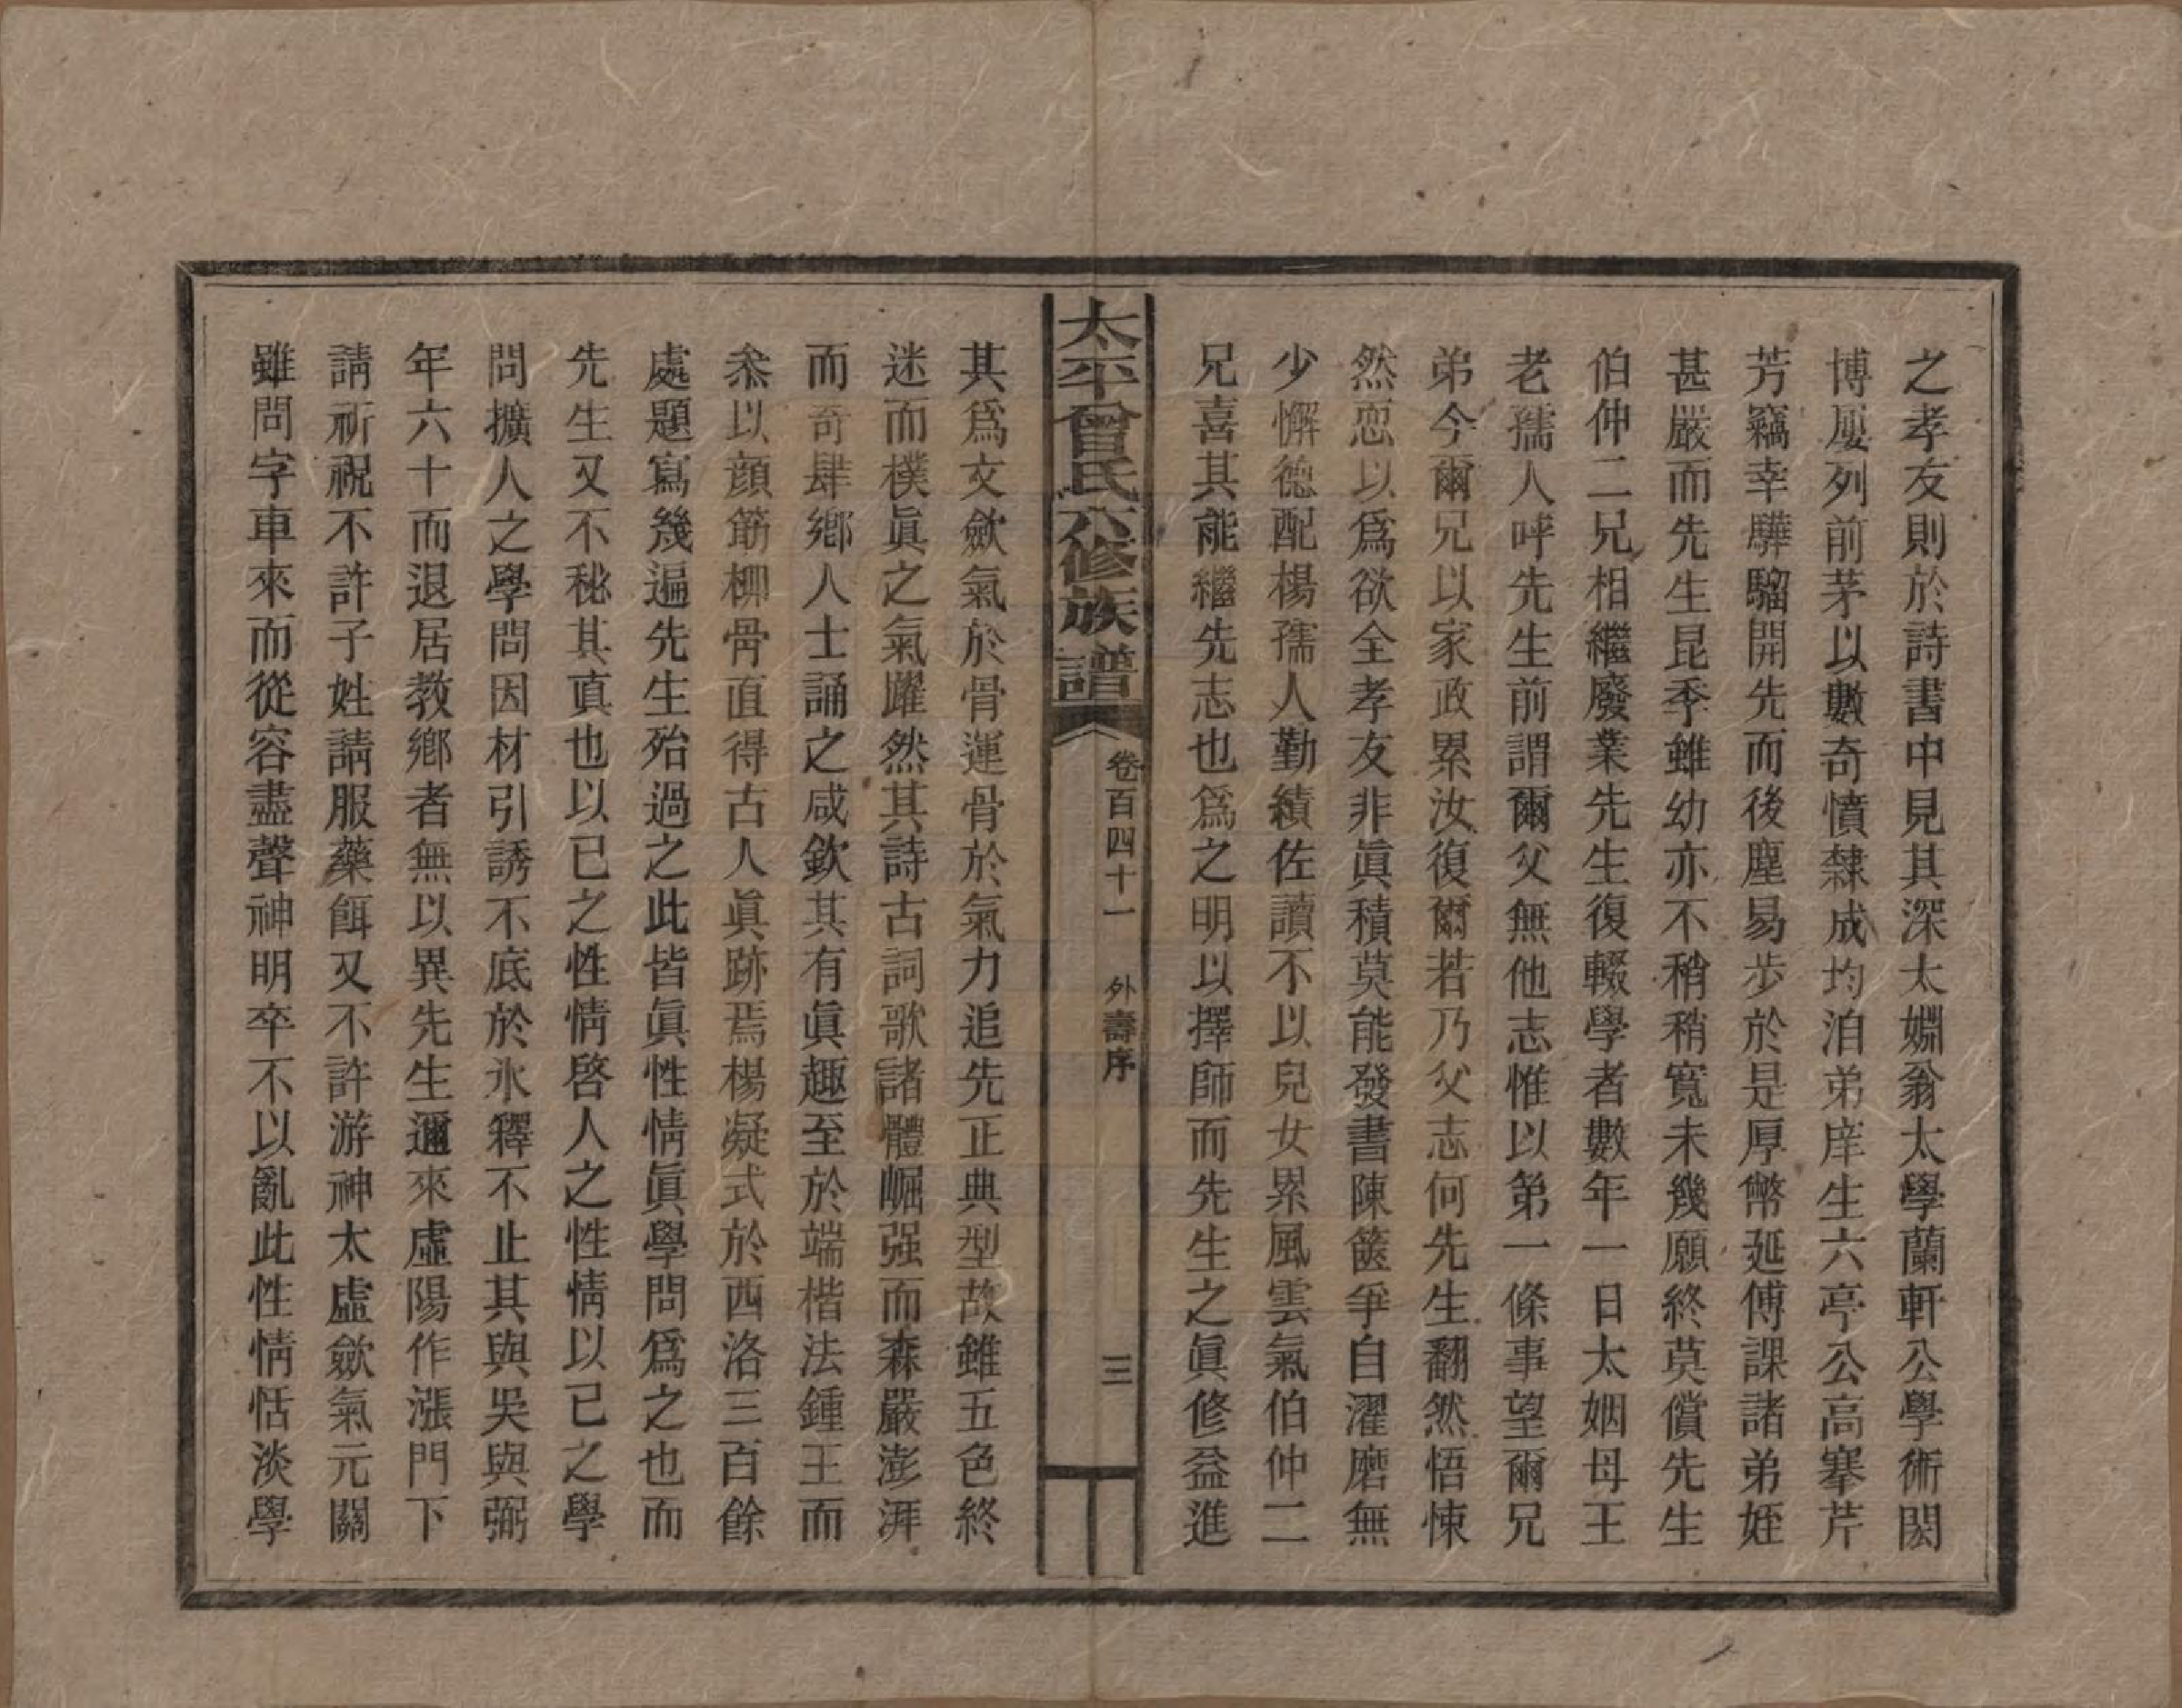 之孝友則於詩書中見其深太嫺翁太學蘭軒公學術閎
博屢列前茅以數奇憤隸成均洎弟庠生六亭公高搴芹
芳竊幸驊騮開先而後塵易步於是厚幣延傅課諸弟姪
甚嚴而先生昆季雖幼亦不稍稍寬未幾願終莫償先生
伯仲二兄相繼廢業先生復輟學者數年一日太姻母王
老孺人呼先生前謂爾父無他志惟以第一條事望爾兄
弟今爾兄以家政累汝復爾若乃父志何先生翻然悟悚
然恧以爲欲全孝友非眞積莫能發書陳篋爭自濯磨無
少懈德配楊孺人勤績佐讀不以兒女累風雲氣伯仲二
兄喜其能繼先志也爲之明以擇師而先生之眞修益進
太平曾氏六修族譜 卷百四十一 外壽序 三
其爲文斂氣於骨運骨於氣力追先正典型故雖五色終
迷而樸眞之氣躍然其詩古詞歌諸體崛强而森嚴澎湃
而奇肆鄉人士誦之咸欽其有眞趣至於端楷法鍾王而
叅以顔筋柳骨直得古人眞跡焉楊凝式於西洛三百餘
處題寫幾遍先生殆過之此皆眞性情眞學問爲之也而
先生又不秘其眞也以已之性情啓人之性情以已之學
問擴人之學問因材引誘不底於氷釋不止其與吳與弼
年六十而退居教鄉者無以異先生邇來虛陽作漲門下
請祈祝不許子姓請服藥餌又不許游神太虛斂氣元關
雖問字車來而從容盡聲神明卒不以亂此性情恬淡學